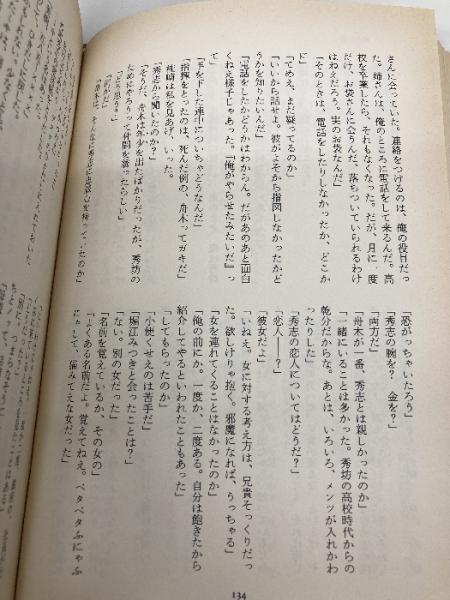 さんに会っていた。連絡をつけるのは、俺の役目だっ
た。姉さんは、俺のところに電話をして来るんだ。高
校を卒業したら、それもなくなった。だが、月に一度
だけ、お袋さんに会うんだ、落ちついていられるわけ
はねえだろう。実のお袋なんだ」
「そのときは、電話をしたりしなかったか、どこか
ど」
「てめえ、まだ疑ってるのか」
「いいから話せよ。彼がよそから指図しなかったかど
うかを知りたいんだ」
「電話をしたかどうかはわからん。だがあのあと面白
くねえ様子じゃあった。『俺がやらせたみたいだ』っ
「手を下した連中についちゃどうなんだ」
「指揮をとったのは、死んだ例の、舟木ってガキだ」
は私を見あげ、いった。
「秀志から聞いたのか？」
「そうだ。舟木は年少を出たばかりだったが、秀坊の
ためにやろうって仲間を募ったらしい」
「どう思う？」
「何がだ」
「舟木は、そんなに秀志に忠誠心を持っていたのか」
「恐がっちゃいたろう」
「秀志の腕を？　金を？」
「両方だ」
「舟木が一番、秀志とは親しかったのか」
「一緒にいることは多かった。秀坊の高校時代からの
乾分だからな。あとは、いろいろ、メンツが入れかわ
ったりした」
「秀志の恋人についてはどうだ？」
「恋人――？」
「彼女だよ」
「いねえ。女に対する考え方は、兄貴そっくりだっ
た。欲しけりゃ抱く。邪魔になれば、うっちゃる」
「女を連れてくることはなかったのか」
「俺の前にか。一度か、二度ある。自分は飽きたから
紹介してやるといわれたこともあった」
「してもらったのか」
「小便くせえのは苦手だ」
「堀江みつきと会ったことは？」
「ない。別の女だった」
「名前を覚えているか、その女の」
「よくある名前だよ。覚えてねえ。ベタベタふにゃふ
にゃして、悩みてえな女だった」
134